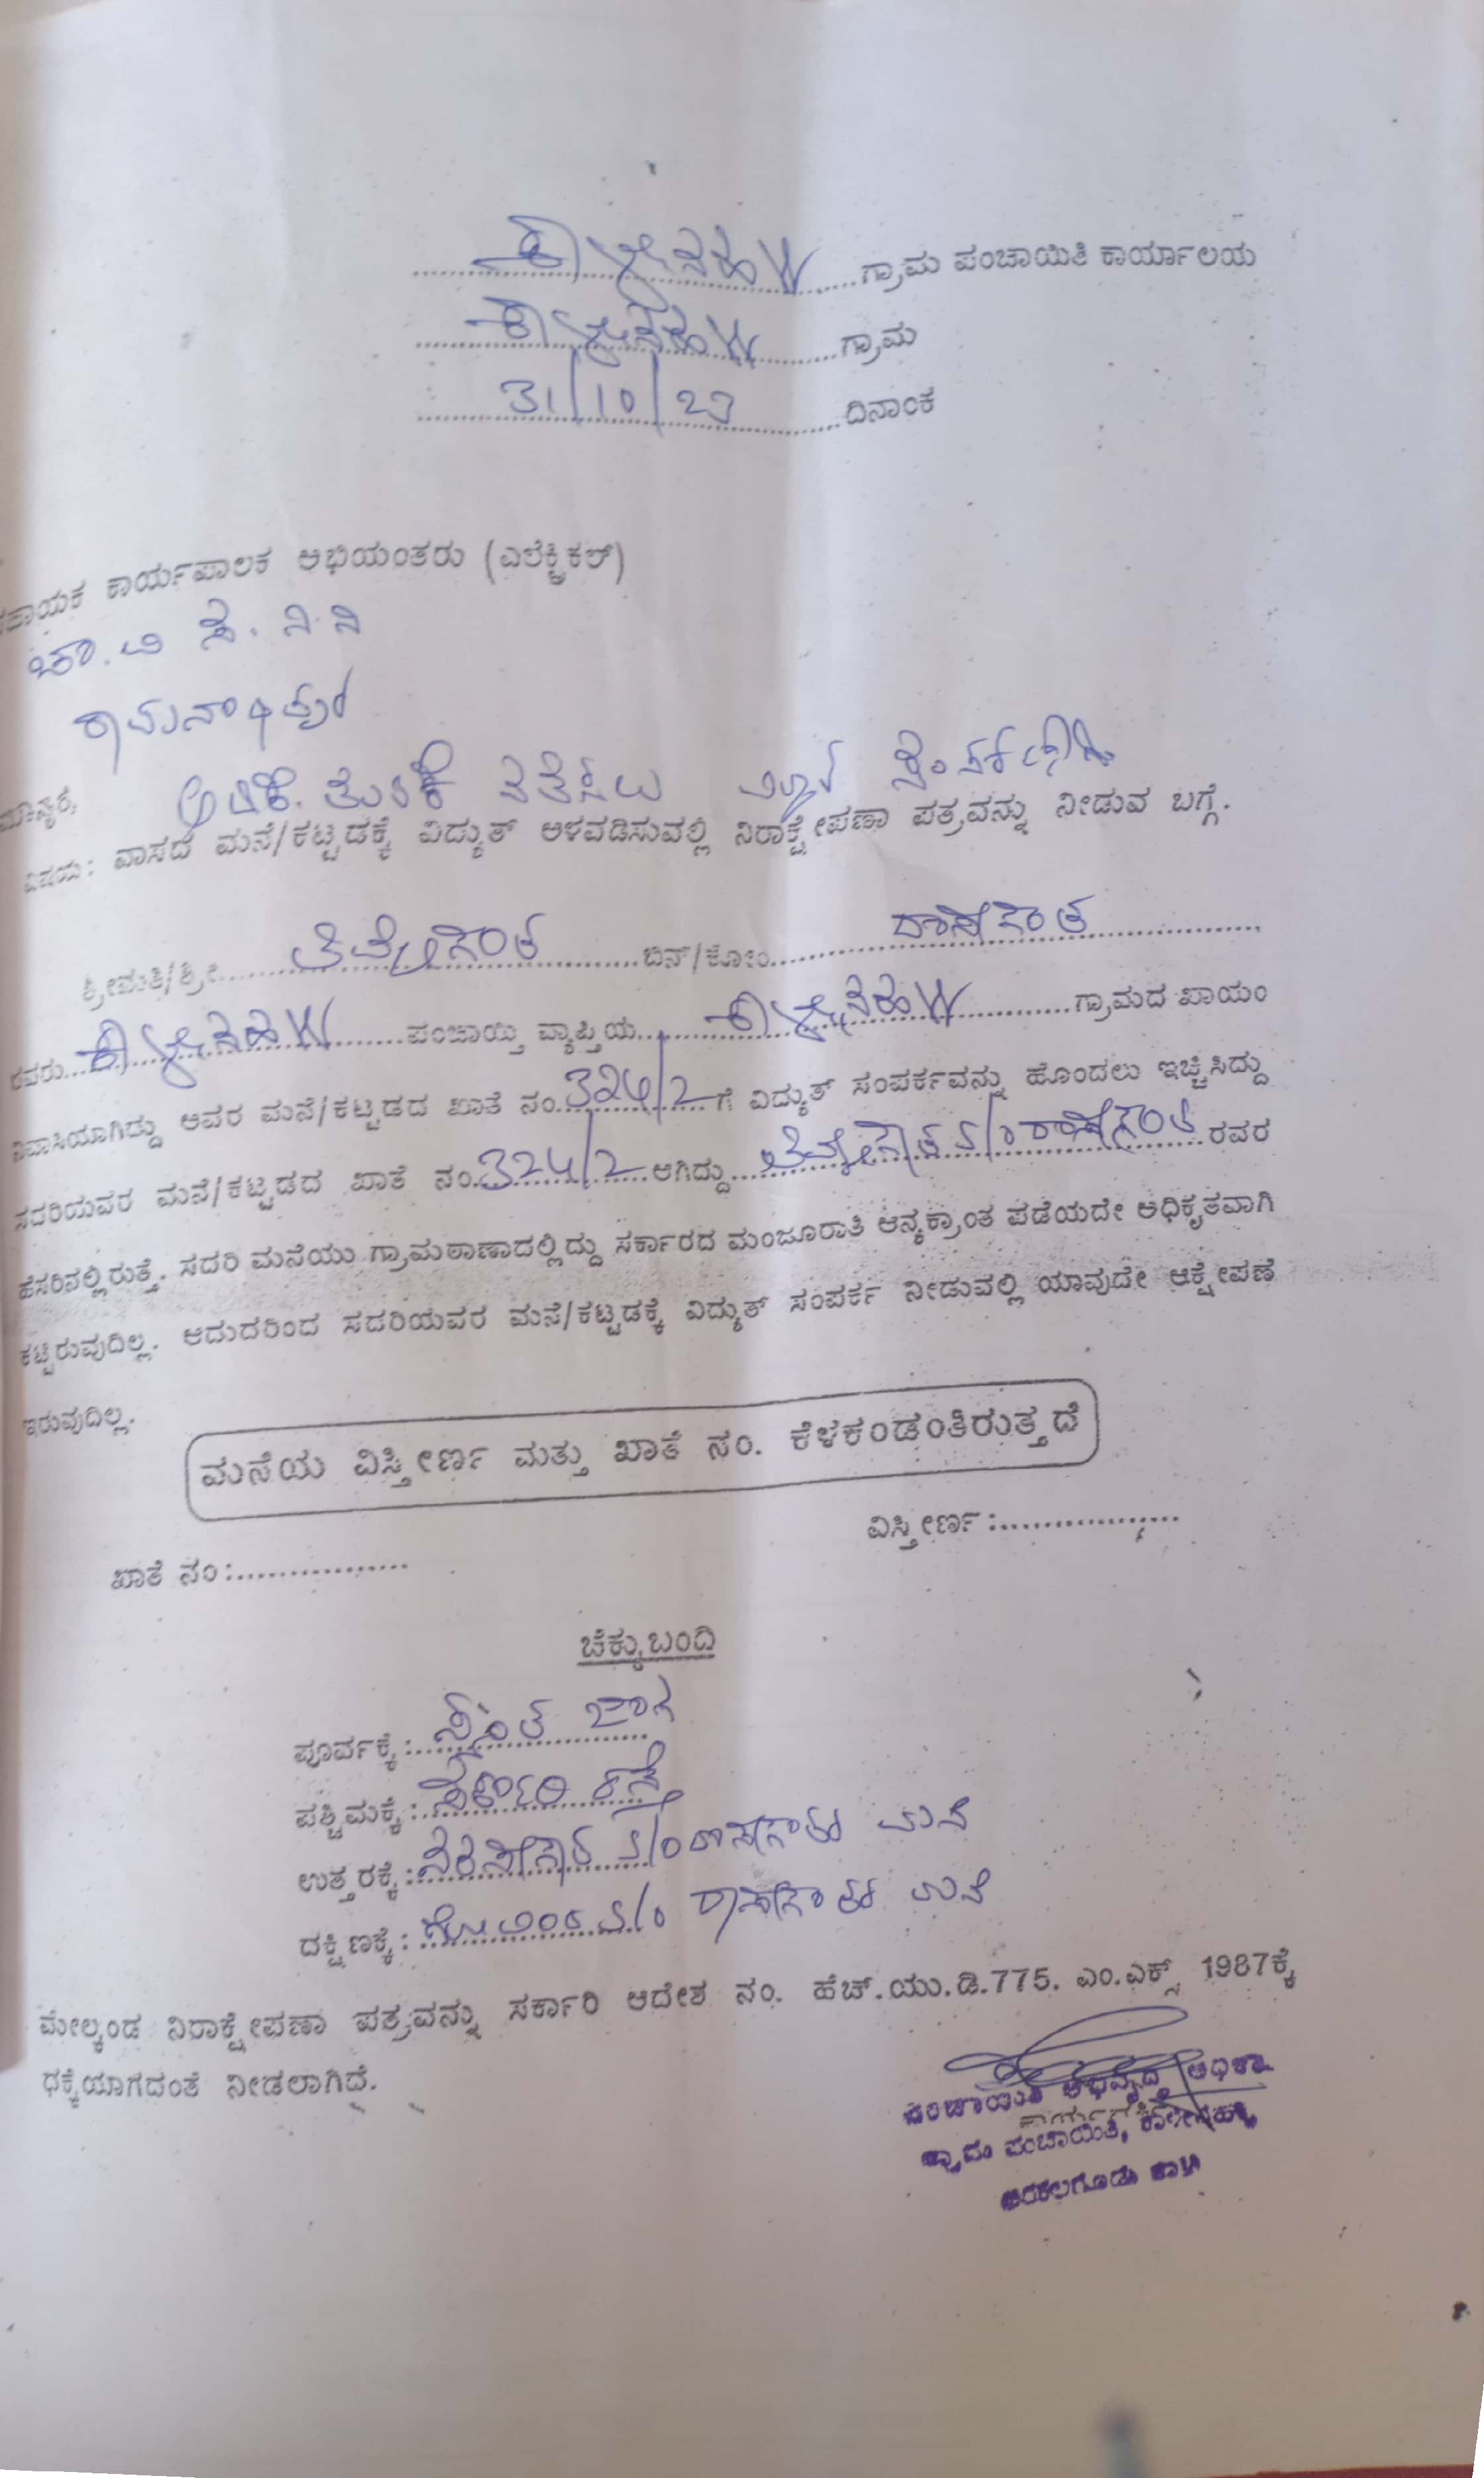 ಕಾಳೇನಹಳ್ಳಿ ಗ್ರಾಮ ಪಂಚಾಯಿತಿ ಕಾರ್ಯಾಲಯ
ಕಾಳೇನಹಳ್ಳಿ ಗ್ರಾಮ
31/10/23 ದಿನಾಂಕ
ಸಹಾಯಕ ಕಾರ್ಯಪಾಲಕ ಅಭಿಯಂತರು (ಎಲೆಕ್ಟ್ರಿಕಲ್)
ಚಾ.ವಿ.ಸ.ನಿ.ನಿ
ರಾಮನಾಥಪುರ
ಮಾನ್ಯರೆ,
ವಿಷಯ: ವಾಸದ ಮನೆ/ಕಟ್ಟಡಕ್ಕೆ ವಿದ್ಯುತ್ ಅಳವಡಿಸುವಲ್ಲಿ ನಿರಾಕ್ಷೇಪಣಾ ಪತ್ರವನ್ನು ನೀಡುವ ಬಗ್ಗೆ.
ಶ್ರೀಮತಿ/ಶ್ರೀ ತಿಮ್ಮೇಗೌಡ ಬಿನ್/ಕೋಂ ದಾಸೇಗೌಡ
ರವರು ಕಾಳೇನಹಳ್ಳಿ ಪಂಚಾಯ್ತಿ ವ್ಯಾಪ್ತಿಯ ಕಾಳೇನಹಳ್ಳಿ ಗ್ರಾಮದ ಖಾಯಂ
ನಿವಾಸಿಯಾಗಿದ್ದು ಅವರ ಮನೆ/ಕಟ್ಟಡದ ಖಾತೆ ನಂ. 324/2 ಗೆ ವಿದ್ಯುತ್ ಸಂಪರ್ಕವನ್ನು ಹೊಂದಲು ಇಚ್ಚಿಸಿದ್ದು
ಸದರಿಯವರ ಮನೆ/ಕಟ್ಟಡದ ಖಾತೆ ನಂ. 324/2 ಆಗಿದ್ದು ತಿಮ್ಮೇಗೌಡ S/o ದಾಸೇಗೌಡ ರವರ
ಹೆಸರಿನಲ್ಲಿರುತ್ತೆ. ಸದರಿ ಮನೆಯು ಗ್ರಾಮಠಾಣಾದಲ್ಲಿದ್ದು ಸರ್ಕಾರದ ಮಂಜೂರಾತಿ ಅನ್ಯಕ್ರಾಂತ ಪಡೆಯದೇ ಅಧಿಕೃತವಾಗಿ
ಕಟ್ಟಿರುವುದಿಲ್ಲ. ಆದುದರಿಂದ ಸದರಿಯವರ ಮನೆ/ಕಟ್ಟಡಕ್ಕೆ ವಿದ್ಯುತ್ ಸಂಪರ್ಕ ನೀಡುವಲ್ಲಿ ಯಾವುದೇ ಆಕ್ಷೇಪಣೆ
ಇರುವುದಿಲ್ಲ.
ಮನೆಯ ವಿಸ್ತೀರ್ಣ ಮತ್ತು ಖಾತೆ ನಂ. ಕೆಳಕಂಡಂತಿರುತ್ತದೆ
ಖಾತೆ ನಂ: ವಿಸ್ತೀರ್ಣ:
ಚೆಕ್ಕುಬಂದಿ
ಪೂರ್ವಕ್ಕೆ: ಸ್ವಂತ ಜಾಗ
ಪಶ್ಚಿಮಕ್ಕೆ: ಸರ್ಕಾರಿ ರಸ್ತೆ
ಉತ್ತರಕ್ಕೆ: S/o ದಾಸೇಗೌಡರ ಮನೆ
ದಕ್ಷಿಣಕ್ಕೆ: S/o ದಾಸೇಗೌಡರ ಮನೆ
ಮೇಲ್ಕಂಡ ನಿರಾಕ್ಷೇಪಣಾ ಪತ್ರವನ್ನು ಸರ್ಕಾರಿ ಆದೇಶ ನಂ. ಹೆಚ್.ಯು.ಡಿ.775. ಎಂ.ಎಕ್ಸ್ 1987ಕ್ಕೆ
ಧಕ್ಕೆಯಾಗದಂತೆ ನೀಡಲಾಗಿದೆ.
ಪಂಚಾಯಿತಿ ಅಭಿವೃದ್ಧಿ ಅಧಿಕಾರಿ
ಕಾರ್ಯದರ್ಶಿ
ಗ್ರಾಮ ಪಂಚಾಯಿತಿ, ಕಾಳೇನಹಳ್ಳಿ
ಅರಕಲಗೂಡು ತಾ||